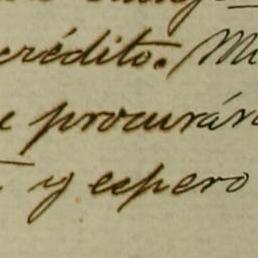 crédito. M
procurán
y espero